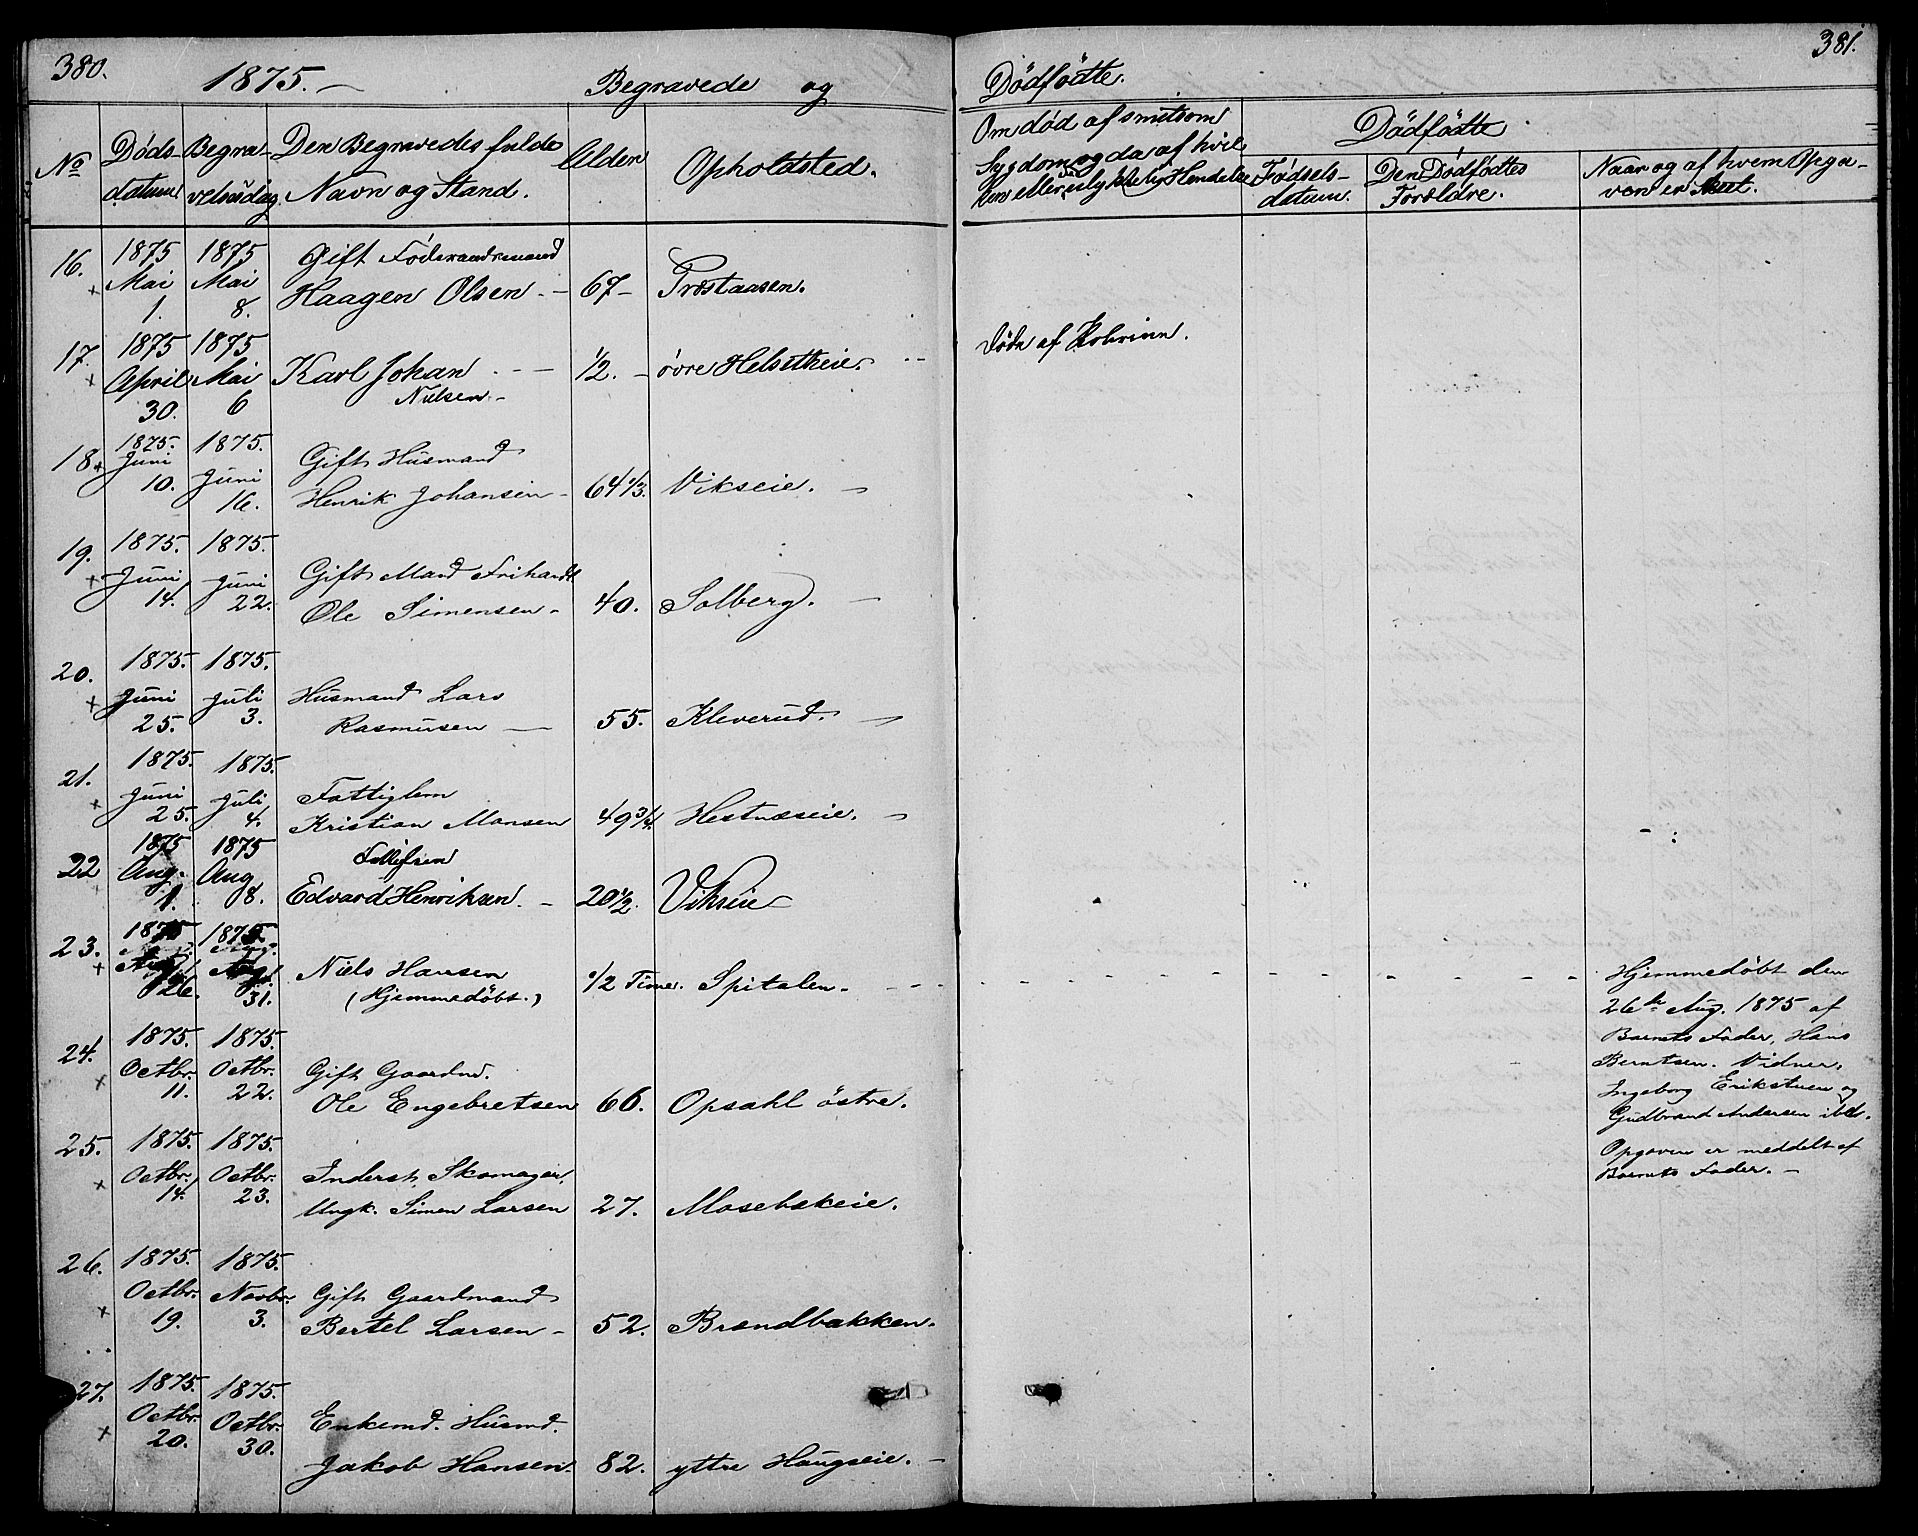 380.
1875. —
Begravede og
Dødfødte.
381.
No
Døds-
datum.
Begra-
velsesdag
Den Begravedes fulde
Navn og Stand.
Alder
Opholdsted.
Om død af smitsom
Sygdom og da af hvil-
ken eller ulykkelig Hendelse
Dødfødte
Fødsels-
datum.
Den Dødfødtes
Forældre.
Naar og af hvem Opga-
ven er
16.
1875 1875 Gift Føderaadsmand
Mai Mai
1. 8. Haagen Olsen. — 67 — Præstaasen.
17.
1875 1875
April Mai Karl Johan - - — 1/2. — øvre Helsetheie.
30. 6 Nielsen — Døde af
18.
1875. 1875. Gift Husmand
Juni Juni
10. 16. Henrik Johansen — 64 1/3. Vikseie. —
19.
1875. 1875.
Juni Juni Gift Mand Frihandl.
14. 22. Ole Simensen — 40. Solberg. —
20.
1875. 1875.
Juni Juli Husmand Lars
25. 3. Rasmusen — 55. Kleverud. —
21.
1875. 1875.
Juni Juli Fattiglem
25. 4. Kristian Monsen 49 3/4. Hestnæseie. —
22
1875 1875
Aug. Aug
1. 8. Edvard Henriksen. — 20 1/2. Vikseie —
23.
1875 1875
Aug. Aug. Niels Hansen 1/2 Time. Spitalen. - - -
26. 31. (Hjemmedøbt.)
Hjemmedøbt den
26de Aug. 1875 af
Barnets Fader, Hans
Berntsen. Vidner,
Ingeborg Erikstuen og
Gudbrand Andersen ibid.
Opgaven er meddelt af
Barnets Fader. —
24.
1875. 1875.
Octbr. Octbr. Gift Gaardmd.
11. 22. Ole Engebretsen 66. Opsahl østre.
25.
1875. 1875.
Octbr. Octbr. Inderst, Skomager,
14. 23. Ungk. Simen Larsen 27. Mosebækeie.
26.
1875. 1875.
Octbr. Novbr. Gift Gaardmand
19. 3. Bertel Larsen — 52. Brændbakken.
27.
1875. 1875.
Octbr. Octbr. Enkemd. Husmd.
20. 30. Jakob Hansen. 82. yttre Haugseie. —